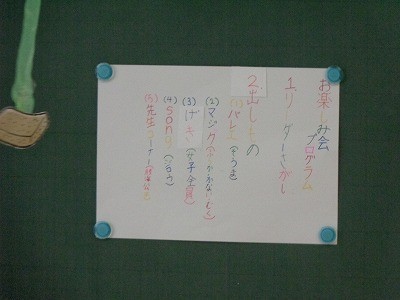 お楽しみ会
プログラム
1.リーダーさがし
2.出しもの
(1)バレエ
(2)マジック
(3)げき(女子全員)
(4)song
(5)先生コーナー